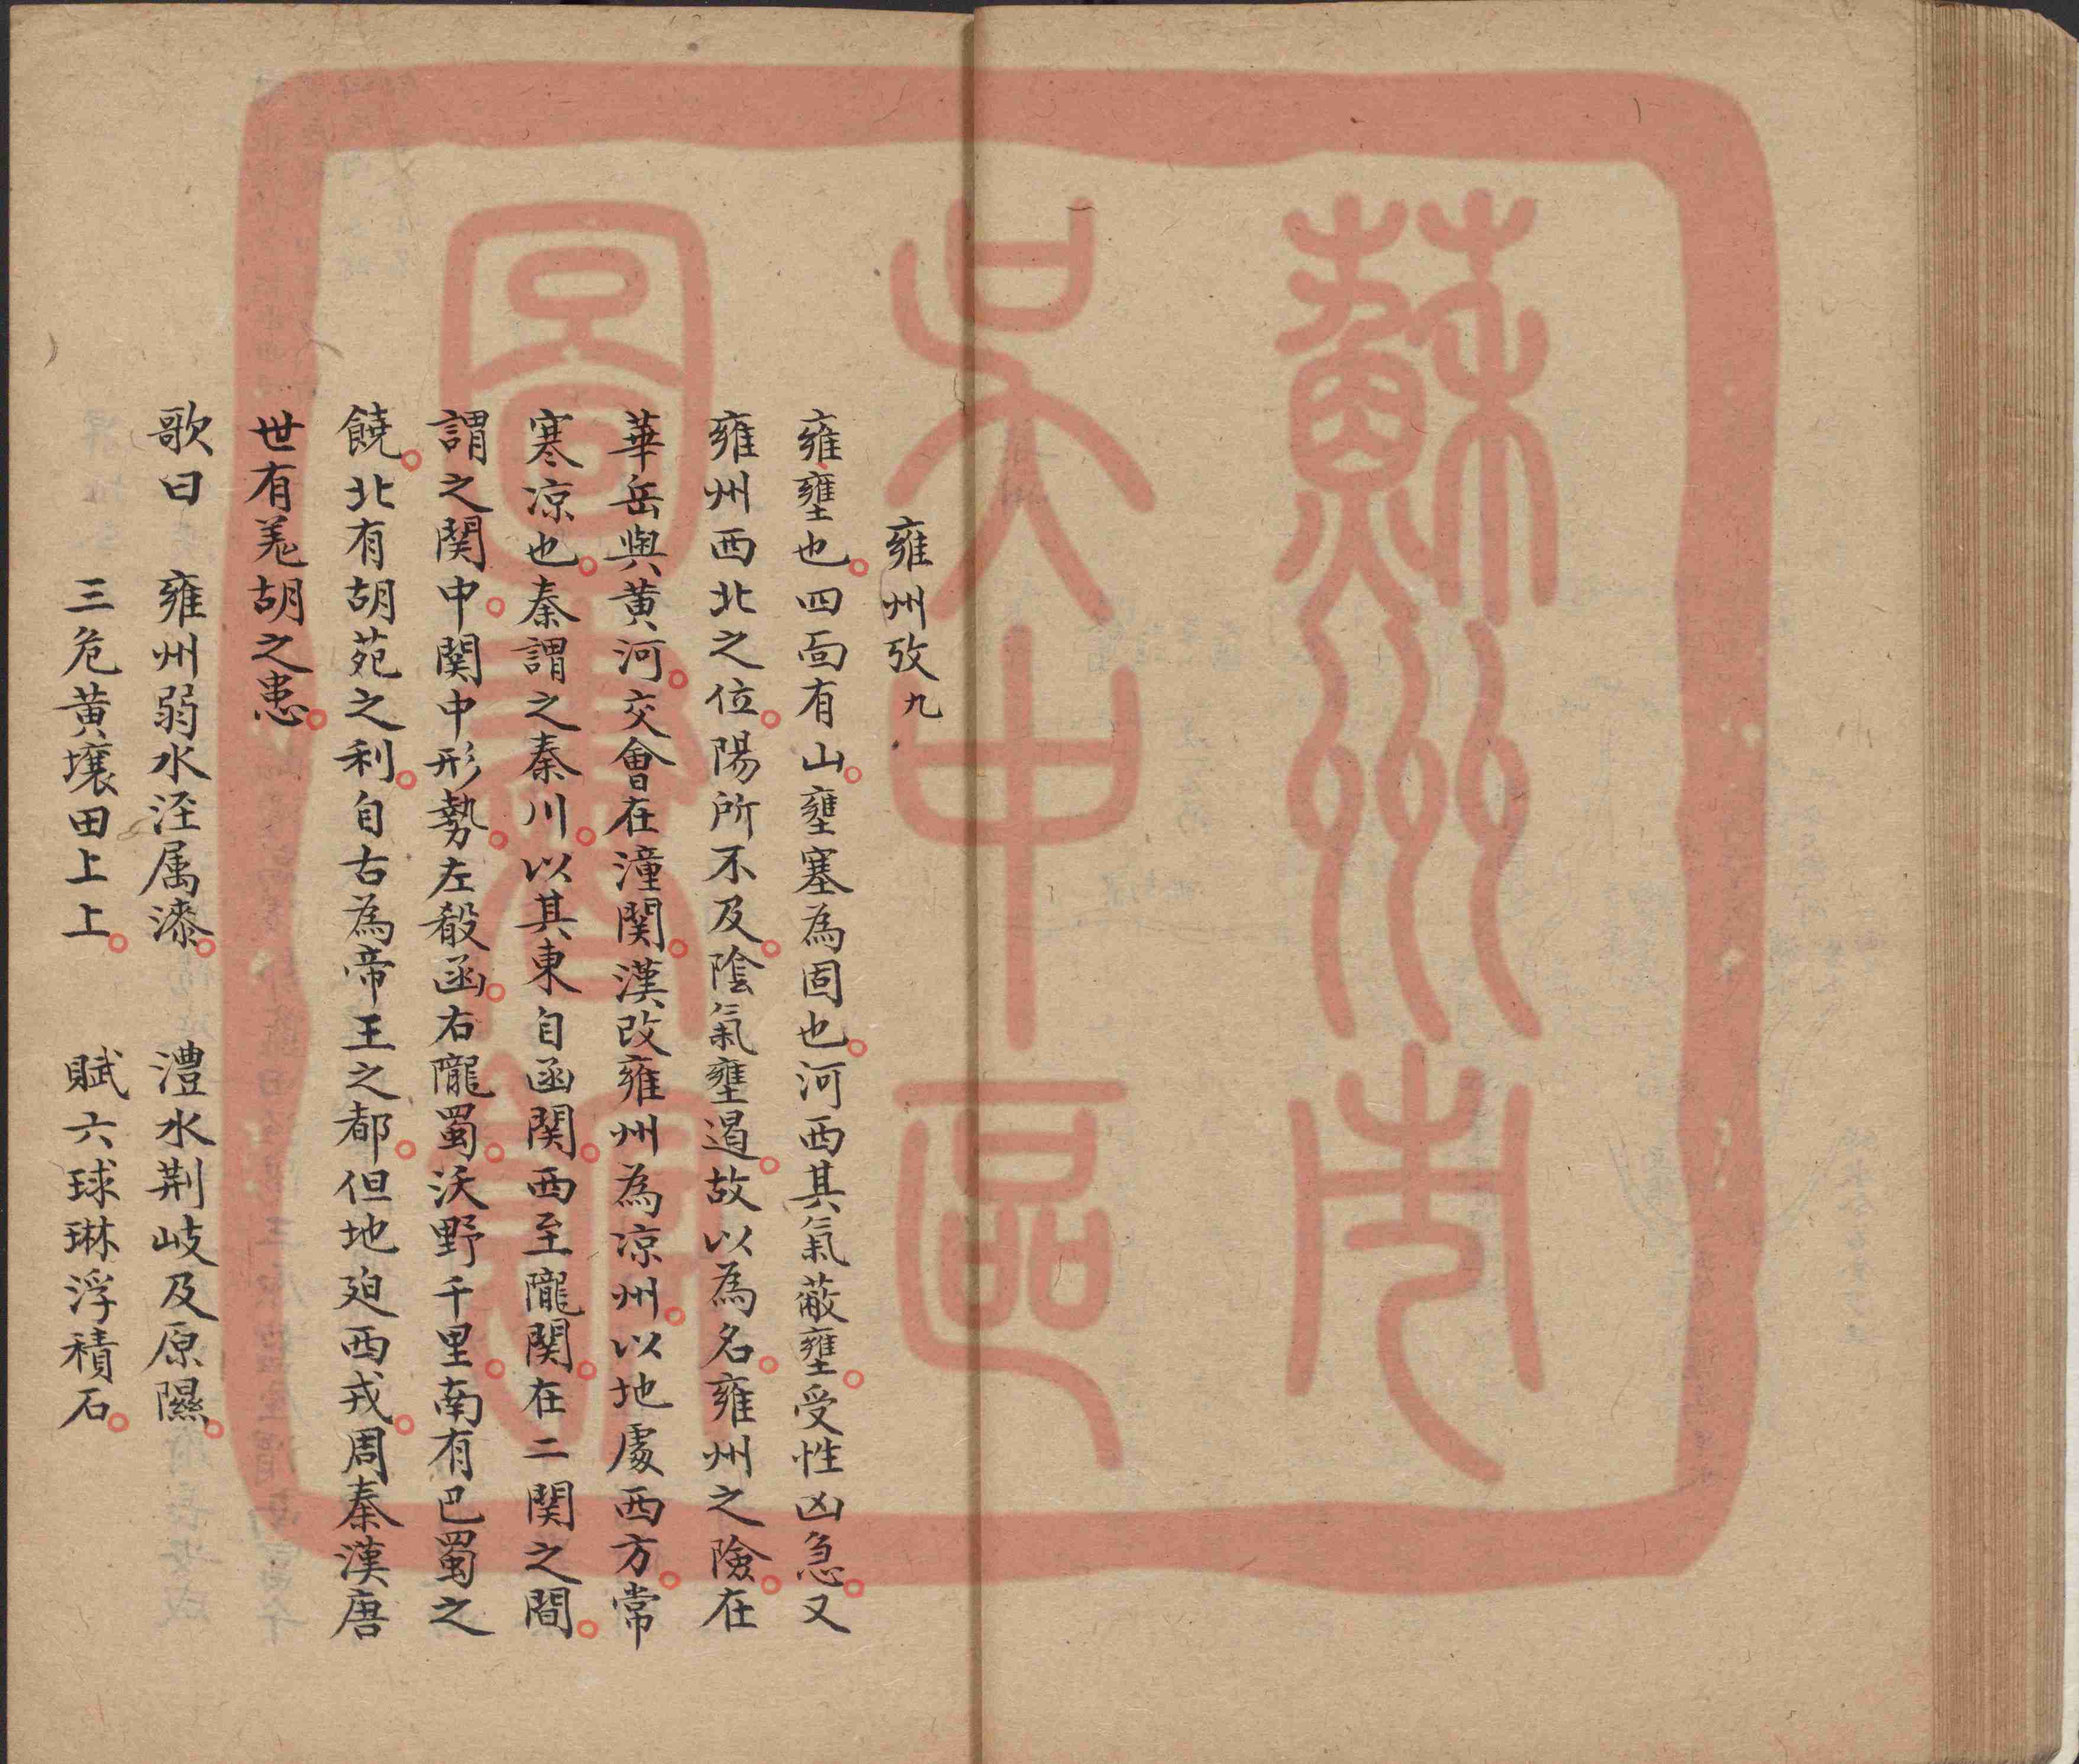 雍州攷九
雍壅也四面有山壅塞為固也河西其氣蔽壅受性凶急又
雍州西北之位陽所不及陰氣壅遏故以為名雍州之險在
華岳與黄河交會在潼関漢改雍州為凉州以地處西方常
寒凉也秦謂之秦川以其東自函関西至隴関在二関之間
謂之関中関中形勢左殽函右隴蜀沃野千里南有巴蜀之
饒北有胡苑之利自古為帝王之都但地廹西戎周秦漢唐
世有羗胡之患
歌曰　雍州弱水涇属漆　灃水荆岐及原隰
三危黄壤田上上　賦六球琳浮積石
蘇州市
吴中區
圖書館